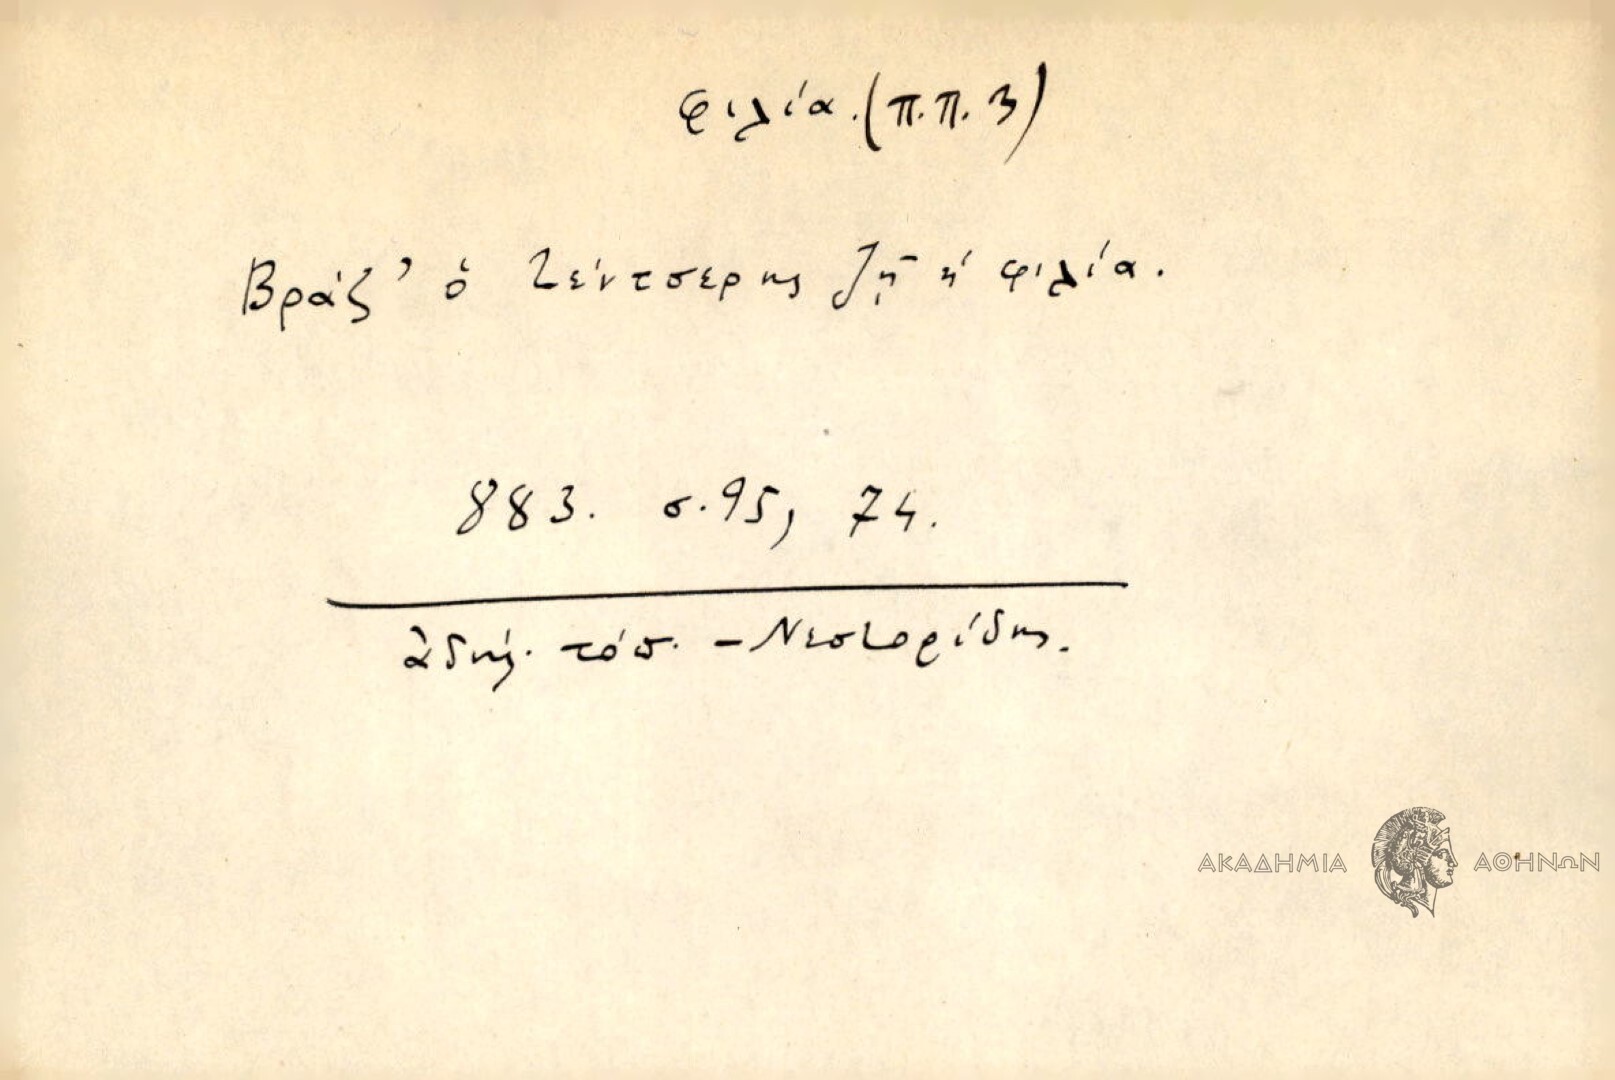 φιλία. (π.π. 3)
Βράζ' ὁ τέντσερης ζῇ ἡ φιλία.
883. σ. 95, 74.
ἀδήλ. τόπ. - Νεστορίδης.
ΑΚΑΔΗΜΙΑ ΑΘΗΝΩΝ